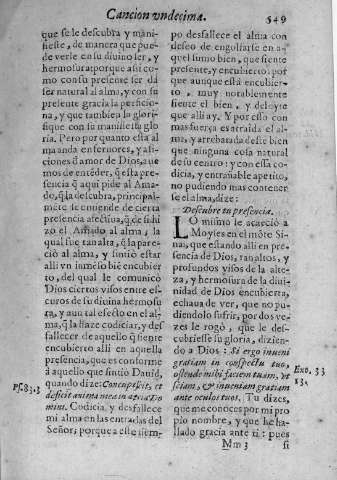 Cancion vndecima. 549
que se le descubra y mani-
fieste, de manera que pue-
de verle en su diuino ser, y
hermosura: porque assi co-
mo con su presente ser dà
ser natural al alma, y con su
presente gracia la perficio-
na, y que tambien la glori-
fique con su manifiesta glo
ria. Pero por quanto esta al
ma anda en feruores, y afi-
ciones d̃ amor de Dios, aue
mos de entẽder, q̃ esta pre-
sencia q̃ aqui pide al Ama-
do, q̃ la descubra, principal-
mẽte se entiende de cierta
presencia afectiua, q̃ de si hi-
zo el Amado al alma, la
qual fue tan alta, q̃ la pare-
ciò al alma, y sintiò estar
alli vn inmẽso biẽ encubier
to, del qual le comunicò
Dios ciertos visos entre es-
curos de su diuina hermosu
ra, y aun tal efecto en el al-
ma, q̃ la haze codiciar, y des
fallecer de aquello q̃ siente
encubierto alli en aquella
presencia, que es conforme
à aquello que sintio Dauid,
Ps. 83. 3 quando dize: Concupiscit, et
deficit anima mea in atria Do
mini. Codicia, y desfallece
mi alma en las entradas del
Señor; porque a este tiem-
po desfallece el alma con
desseo de engolfarse en a-
quel sumo bien, que siente
presente, y encubierto; por
que aunque està encubier-
to, muy notablemente
siente el bien, y deleyte
que alli ay. Y por esto con
mas fuerça es atraida el al-
ma, y arrebatada deste bien
que ninguna cosa natural
de su centro: y con essa co-
dicia, y entrañable apetito,
no pudiendo mas contener
se el alma, dize:
Descubre tu presencia.
LO mismo le acaeciò a
Moyses en el mõte Si-
na, que estando alli en pre-
sencia de Dios, tan altos, y
profundos visos de la alte-
za, y hermosura de la diui-
nidad de Dios encubierta,
echaua de ver, que no pu-
diendolo sufrir, por dos ve-
zes le rogò, que le des-
cubriesse su gloria, dizien-
do a Dios: Si ergo inueni
gratiam in conspectu tuo, Exo. 33
ostende mihi faciem tuam, vt 13.
sciam, & inueniam gratiam
ante oculos tuos. Tu dizes,
que me conoces por mi pro
pio nombre, y que he ha-
llado gracia ante ti: pues
Mm 3 si